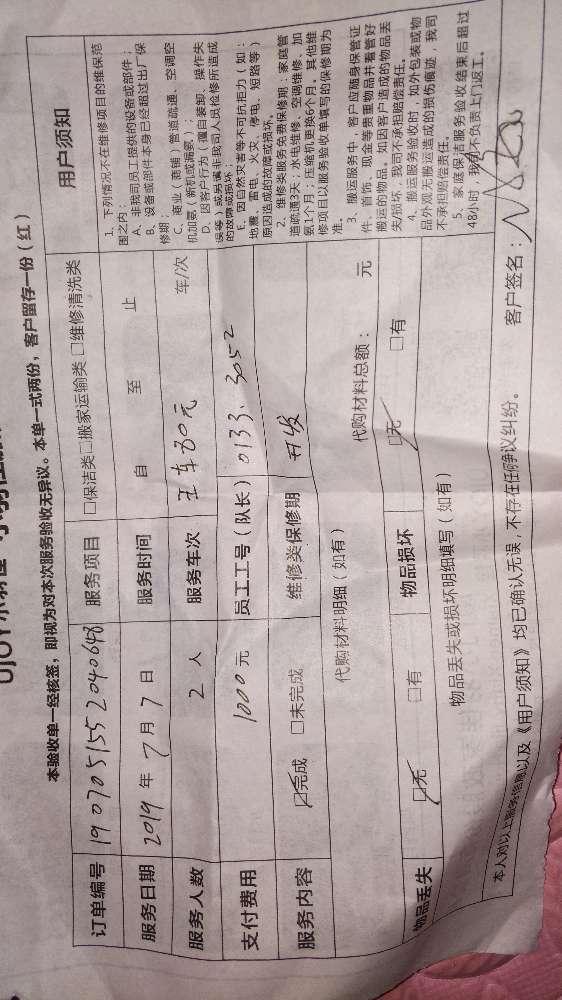 本验收单一经核签，即视为对本次服务验收无异议。本单一式两份，客户留存一份（红）
订单编号 1907051552040648 服务项目 □保洁类□搬家运输类 □维修清洗类
服务日期 2019 年 7 月 7 日 服务时间 自 至 止
服务人数 2 人 服务车次 80元 车/次
支付费用 1000 元 员工工号（队长） 0133. 3052
服务内容 ☑完成 □未完成 维修类保修期
代购材料明细（如有） 代购材料总额： 元
物品丢失 ☑无 □有 物品损坏 ☑无 □有
物品丢失或损坏明细填写（如有）
用户须知
1、下列情况不在维修项目的维保范
围之内：
A、非我司员工提供的设备或部件；
B、设备或部件本身已经超过出厂保
修期；
C、商业（商铺）管道疏通、空调空
机加氨（新机或漏氨）；
D、因客户行为（擅自装卸、操作失
误等）或另害非我司人员检修所造成
的故障或损坏；
E、因自然灾害等不可抗拒力（如：
地震、雷电、火灾、停电、短路等）
原因造成的故障或损坏。
2、维修类服务免费保修期：家庭管
道疏通3天；水电维修、空调维修、加
氨1个月；压缩机更换6个月。其他维
修项目以服务验收单填写的保修期为
准。
3、搬运服务中，客户应随身保管证
件、首饰、现金等贵重物品并看管好
搬运的物品。如因客户造成的物品丢
失/损坏，我司不承担赔偿责任。
4、搬运服务验收时，如外包装或物
品外观无搬运造成的损伤痕迹，我司
不承担赔偿责任。
5、家庭保洁服务验收结束后超过
48小时，我司不负责上门返工。
本人对以上服务信息以及《用户须知》均已确认无误，不存在任何争议纠纷。 客户签名：